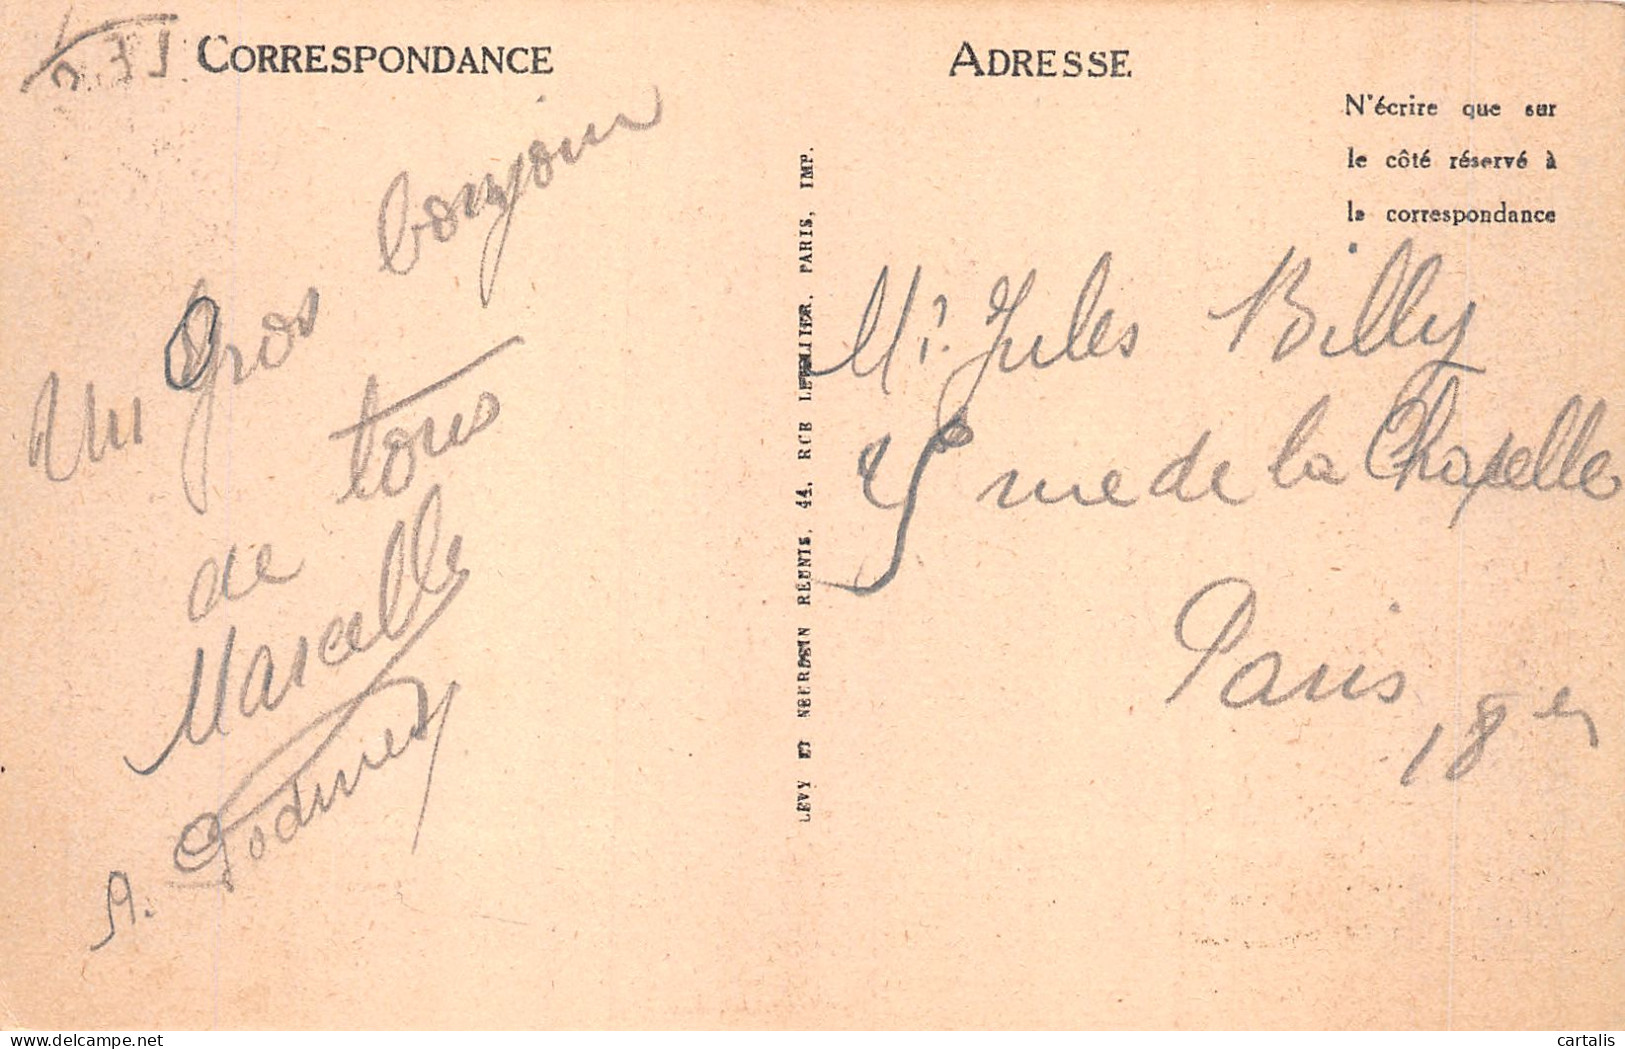 CORRESPONDANCE
Un gros bonjour
à tous
de
Marcelle
A.
LEVY ET NEURDEIN RÉUNIS, 44, RUE LETELLIER, PARIS, IMP.
ADRESSE
N'écrire que sur
le côté réservé à
la correspondance
Mr Jules Billy
rue de la Chapelle
Paris
18e
cartalis